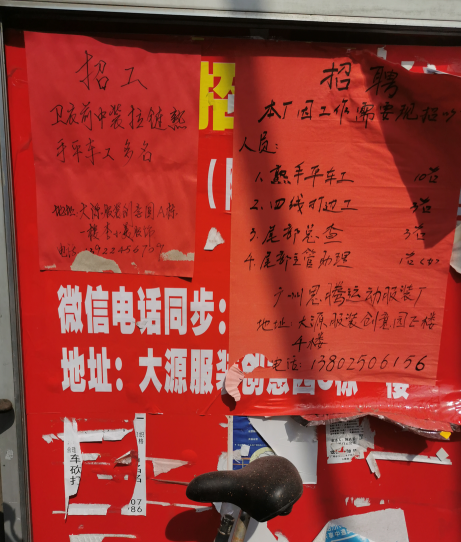 招工
卫衣前中装拉链熟
手平车工多名
地址:大源服装创意园A栋
一楼
电话
招聘
本厂因工作需要现招以下
人员:
1.熟手平车工 10名
2.四线打边工 3名
3.尾部总查 3名
4.尾部主管助理 1名(女)
广州思腾运动服装厂
地址:大源服装创意园E楼
4楼
电话:13802506156
招
微信电话同步:
地址:大源服装创意园 栋 楼
车砍打